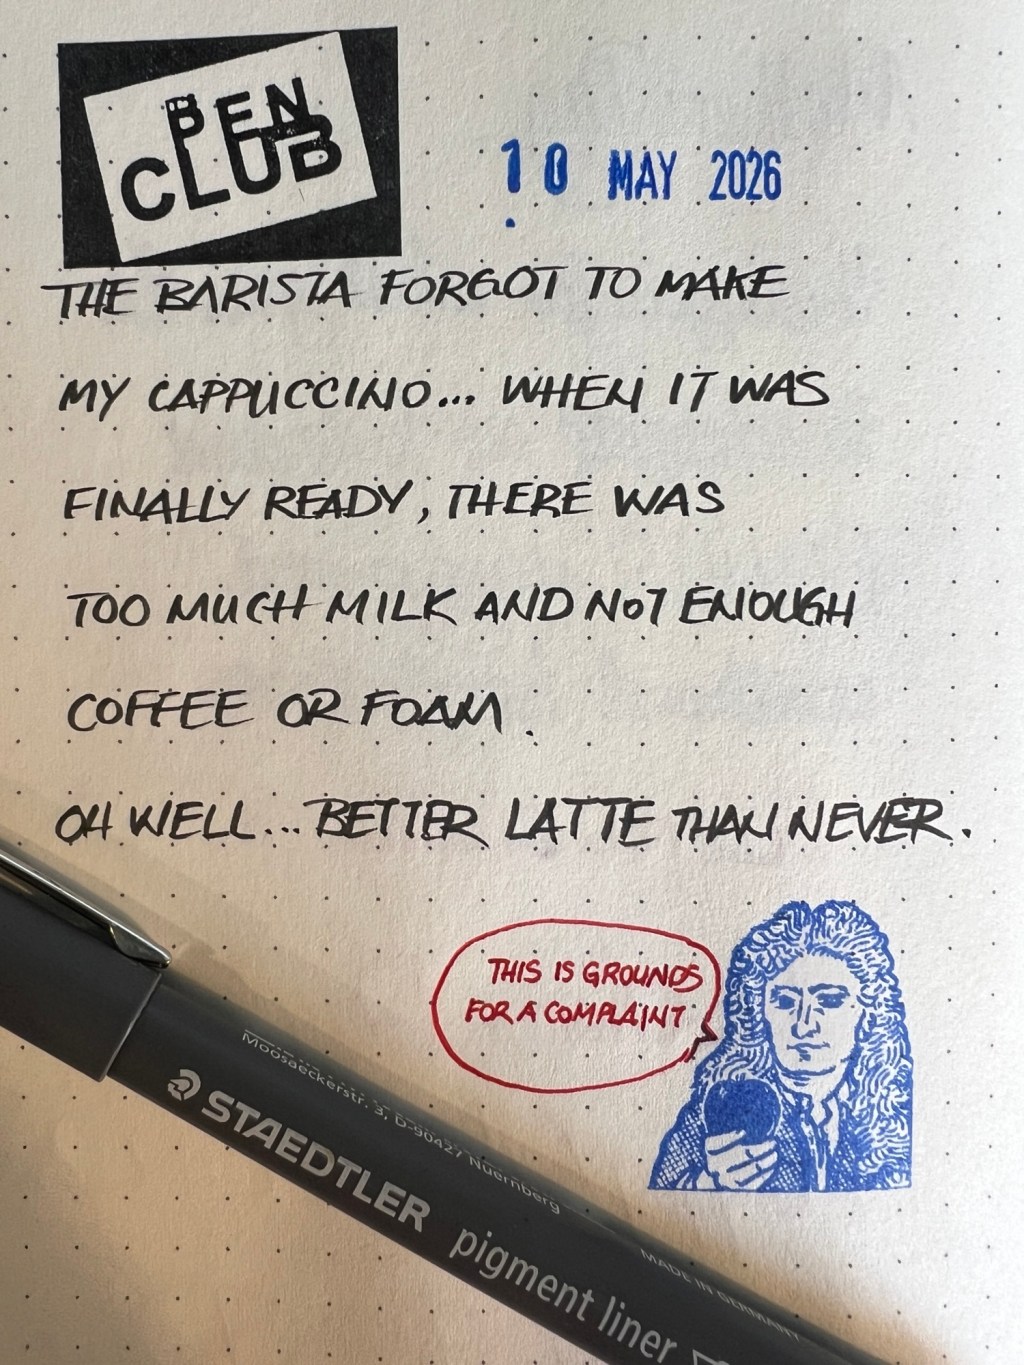 PEN
CLUB
10 MAY 2026
THE BARISTA FORGOT TO MAKE
MY CAPPUCCINO... WHEN IT WAS
FINALLY READY, THERE WAS
TOO MUCH MILK AND NOT ENOUGH
COFFEE OR FOAM.
OH WELL... BETTER LATTE THAN NEVER.
THIS IS GROUNDS
FOR A COMPLAINT
Moosaeckerstr. 3, D-90427 Nuernberg
STAEDTLER
pigment liner
MADE IN GERMANY